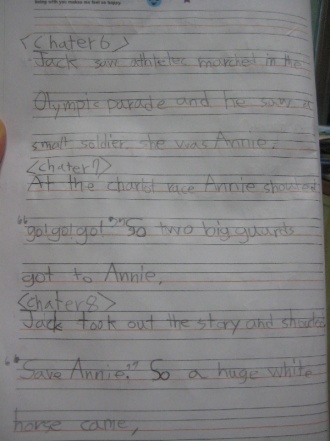 being with you makes me feel so happy
<Chater 6>
Jack saw athletes marcet in the
Olympic parade and he saw a
small soldier. she was Annie.
<chater 7>
At the chariot race Annie shouted
"go! go! go!" So two big guards
got to Annie.
<chater 8>
Jack took out the story and shouted
"Save Annie." So a huge white
horse came,